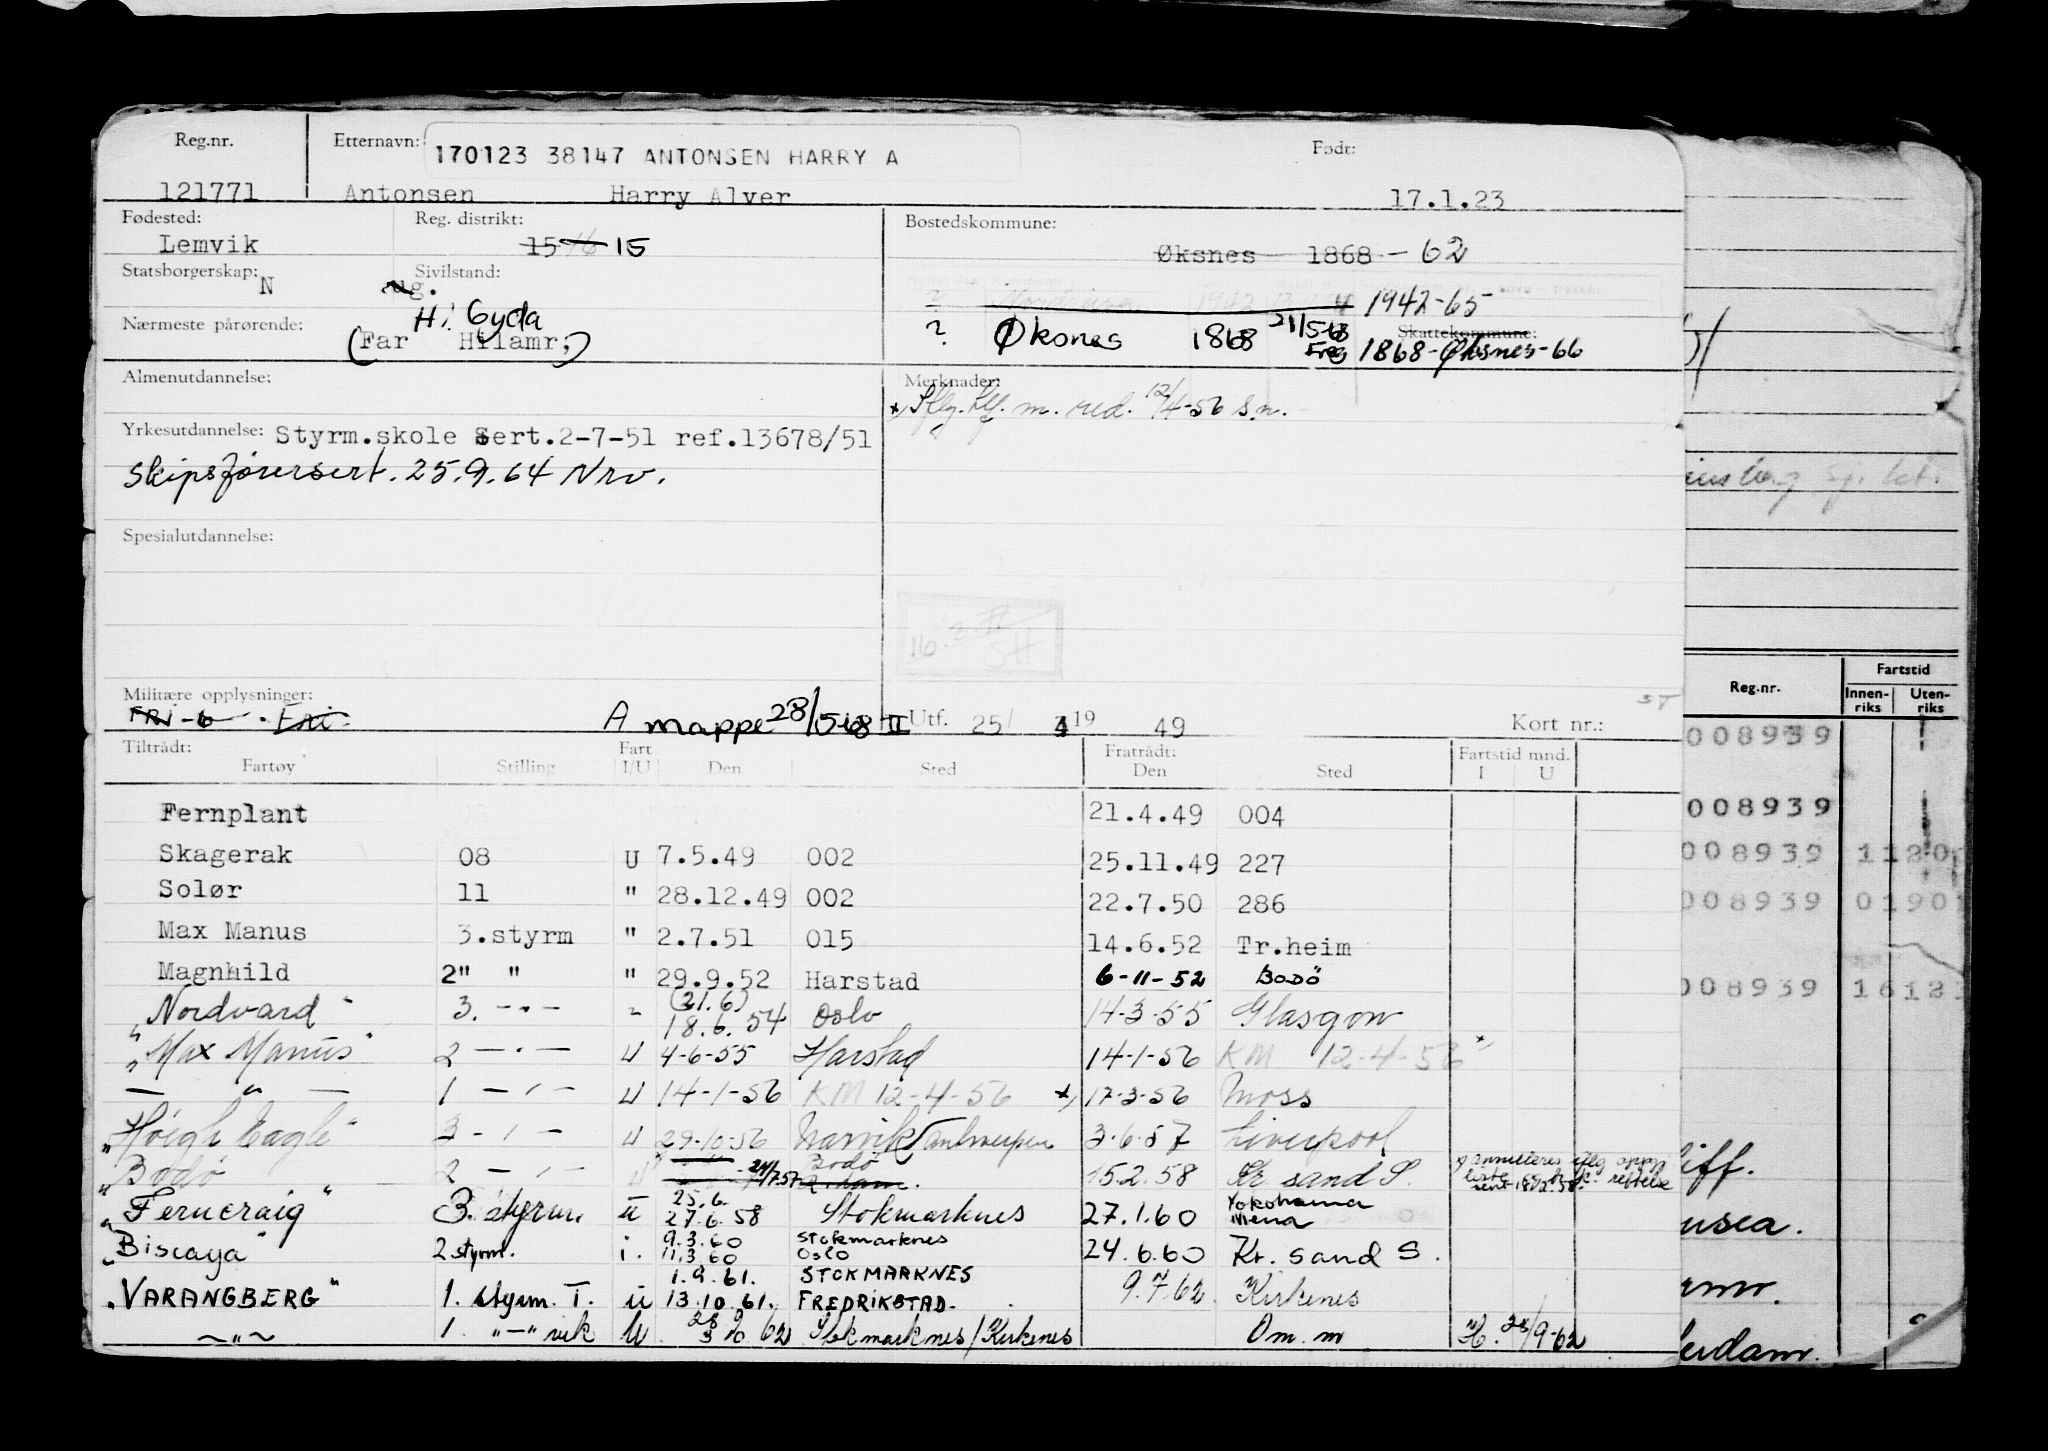 Reg.nr. Etternavn: 170123 38147 ANTONSEN HARRY A Født:
121771 Antonsen Harry Alver 17.1.23
Fødested: Reg. distrikt: Bostedskommune:
Lemvik 15 16 15 Øksnes 1868 - 62
Statsborgerskap: N Sivilstand: ug.
? 1942 1942-65
Nærmeste pårørende: H: Gyda
(Far Hilamr;)
? Øksnes 1868 21/5-68 Skattekommune:
Freg 1868-Øksnes-66
Almenutdannelse: Merknader:
x) m. red. 12/4-56 s.n.
Yrkesutdannelse: Styrm.skole Sert.2-7-51 ref.13678/51
Skipsførersert. 25.9.64 Nrv.
Spesialutdannelse:
16.3. SH
Militære opplysninger:
FRi-6 . FRi. A mappe 28/5-68 II Utf. 25/ 4 19 49 Kort nr.: ST
Tiltrådt: Fart Fratrådt: Fartstid mnd.
Fartøy Stilling I/U Den Sted Den Sted I U
Fernplant 21.4.49 004
Skagerak 08 U 7.5.49 002 25.11.49 227
Solør 11 " 28.12.49 002 22.7.50 286
Max Manus 3.styrm " 2.7.51 015 14.6.52 Tr.heim
Magnhild 2" " " 29.9.52 Harstad 6-11-52 BODÖ
"Nordvard" 3. -"- " (21.6) 18.6.54 Oslo 14-3-55 Glasgow
"Max Manus" 2 -"- U 4-6-55 Harstad 14-1-56 KM 12-4-56 x)
- " - 1 -"- U 14-1-56 KM 12-4-56 x) 17-3-56 Moss
"Høegh Eagle" 3 -"- U 29-10-56 Narvik/Antwerpen 3.6.57 Liverpool
"Bodø 2 -"- U 24/7 57 Bodø 15.2.58 Kr. sand S.
"Ferncraig" 3. styrm. u 25.6. 27.6.58 Stokmarknes 27.1.60 Yokohama Mena
"Biscaya" 2 styrm. i. 9.3.60 11.3.60 Stokmarknes Oslo 24.6.60 Kr. sand S.
"VARANGBERG" 1. styrm. T. u 1.9.61. 13.10.61. STOKMARKNES FREDRIKSTAD. 9.7.62. Kirkenes
-"- 1. "-" vik U. 28 Stokmarknes/Kirkenes Om. m 28/9-62
Reg.nr. Fartstid
Innen-riks Uten-riks
008939
008939
008939 1120
008939 0190
008939 1612
iff.